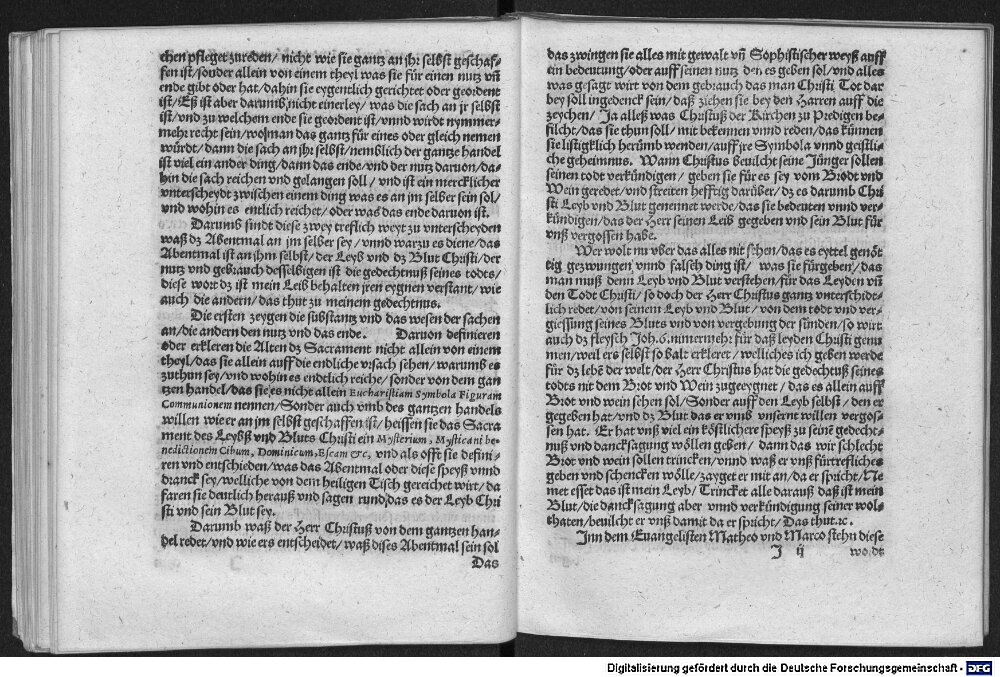 chen pfleget zureden/ nicht wie sie gantz an jhr selbst geschaf-
fen ist/sonder allein von einem theyl was sie für einen nutz vñ
ende gibt oder hat/dahin sie eygentlich gerichtet oder geordent
ist/Eß ist aber darumb nicht einerley/ was die sach an jr selbst
ist/vnd zu welchem ende sie geordent ist/vnnd wirdt nymmer-
mehr recht sein/wo man das gantz für eines oder gleich nemen
würdt/dann die sach an jhr selbst/nemblich der gantze handel
ist viel ein ander ding/dann das ende/vnd der nutz daruon/da-
hin die sach reichen vnd gelangen soll/ vnd ist ein mercklicher
vnterscheydt zwischen einem ding was es an jm selber sein sol/
vnd wohin es entlich reichet/oder was das ende daruon ist.
Darumb sindt diese zwey treflich weyt zu vnterscheyden
waß dz Abentmal an jm selber sey/vnnd warzu es diene/das
Abentmal ist an jhm selbst/der Leyb vnd dz Blut Christi/der
nutz vnd gebrauch desselbigen ist die gedechtnuß seines todts/
diese wort dz ist mein Leib behalten jren eygnen verstant/wie
auch die andern/das thut zu meinem gedechtnus.
Die ersten zeygen die substantz vnd das wesen der sachen
an/die andern den nutz vnd das ende. Daruon definieren
oder erkleren die Alten dz Sacrament nicht allein von einem
theyl/das sie allein auff die endliche vrsach sehen/warumb es
zuthun sey/vnd wohin es endtlich reiche/sonder von dem gan
tzen handel/das sie es nicht allein Eucharistiam Symbola Figuram
Communionem nennen/Sonder auch vmb des gantzen handels
willen wie er an jm selbst geschaffen ist/heissen sie das Sacra
ment des Leybß vnd Bluts Christi ein Mysterium, Mysticam be
nedictionem Cibum, Dominicum, Escam &c, vnd als offt sie defini-
ren vnd entschieden/was das Abentmal oder diese speyß vnnd
dranck sey/welliche von dem heiligen Tisch gereichet wirt/da
faren sie deutlich herauß vnd sagen rund/das es der Leyb Chri
sti vnd sein Blut sey.
Darumb waß der Herr Christuß von dem gantzen han-
del redet/vnd wie ers entscheidet/waß dises Abentmal sein sol
Das
das zwingen sie alles mit gewalt vñ Sophistischer weyß auff
ein bedeutung/oder auff seinen nutz den es geben sol/vnd alles
was gesagt wirt von dem gebrauch das man Christi Tot dar
bey soll ingedenck sein/daß ziehen sie bey den Harren auff die
zeychen/ Ja alleß was Christuß der Kirchen zu Predigen be-
filcht/das sie thun soll/mit bekennen vnnd reden/das künnen
sie listigklich herümb wenden/auff jre Symbola vnnd geistli-
che geheimnus. Wann Christus beuilcht seine Jünger sollen
seinen todt verkündigen/ geben sie für es sey vom Brodt vnd
Wein geredet/vnd streiten hefftig darüber/dz es darumb Chri
sti Leyb vnd Blut genennet werde/das sie bedeuten vnnd ver-
kündigen/das der Herr seinen Leib gegeben vnd sein Blut für
vnß vergossen habe.
Wer wolt nu vber das alles nit sehen/das es eyttel genöt
tig gezwungen vnnd falsch ding ist/ was sie fürgeben/das
man muß denn Leyb vnd Blut verstehen/für das Leyden vñ
den Todt Christi/so doch der Herr Christus gantz vnterschidt-
lich redet/von seinem Leyb vnd Blut/von dem todt vnd ver-
giessung seines Bluts vnd von vergebung der sünden/so wirt
auch dz fleysch Joh.6.nimermehr für daß leyden Christi genu
men/weil ers selbst so balt erkleret/welliches ich geben werde
für dz lebē der welt/der Herr Christus hat die gedechtuß seines
todts nit dem Brot vnd Wein zugeeygnet/das es allein auff
Brot vnd wein sehen sol/Sonder auff den Leyb selbst/den er
gegeben hat/vnd dz Blut das er vmb vnsernt willen vergos-
sen hat. Er hat vnß viel ein köstlichere speyß zu seinē gedecht-
nuß vnd dancksagung wöllen geben/ dann das wir schlecht
Brot vnd wein sollen trincken/vnnd waß er vnß fürtrefliches
geben vnd schencken wölle/zayget er mit an/da er spricht/Ne
met esset das ist mein Leyb/ Trincket alle darauß daß ist mein
Blut/die dancksagung aber vnnd verkündigung seiner wol-
thaten/beuilcht er vnß damit da er spricht/Das thut.ꝛc.
Inn dem Euangelisten Matheo vnd Marco stehn diese
J ij wordt
Digitalisierung gefördert durch die Deutsche Forschungsgemeinschaft - DFG